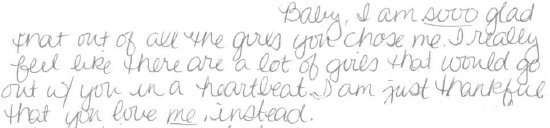 Baby, I am sooo glad
that out of all the girls you chose me. I really
feel like there are a lot of girls that would go
out w/ you in a heartbeat. I am just thankful
that you love me, instead.